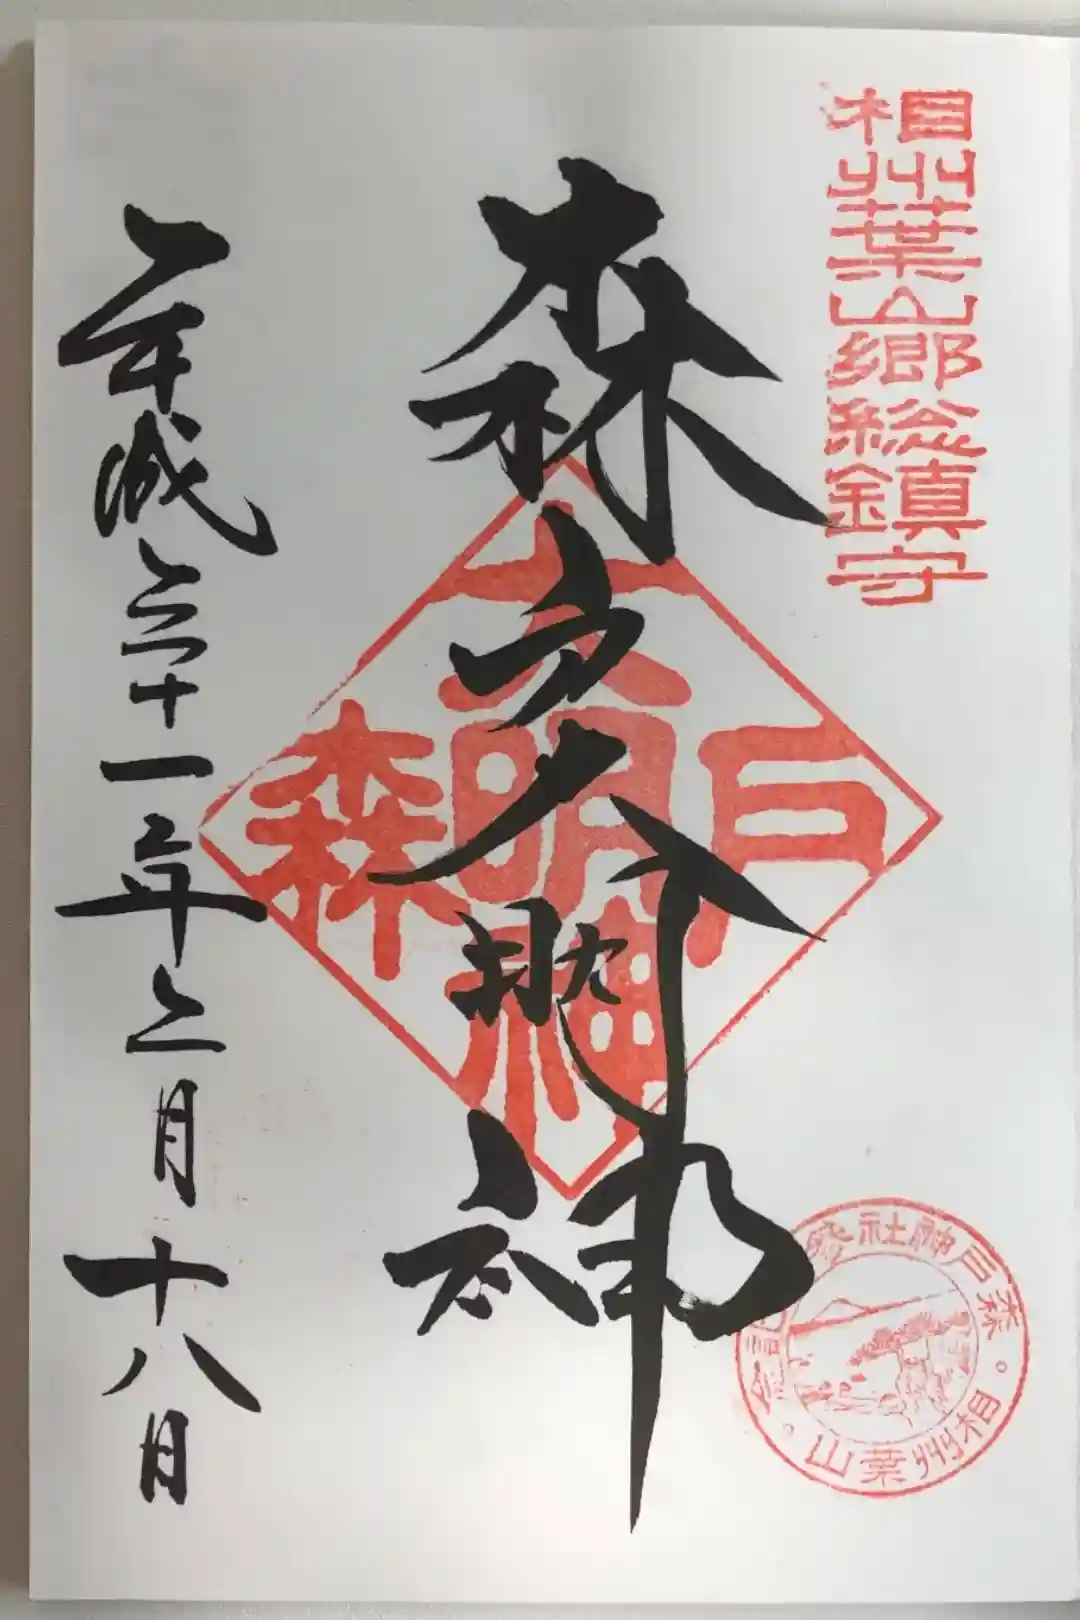 相州葉山郷総鎮守
森戸大明神
森戸大明神
平成三十一年二月十八日
森戸神社参拝記念
相州葉山